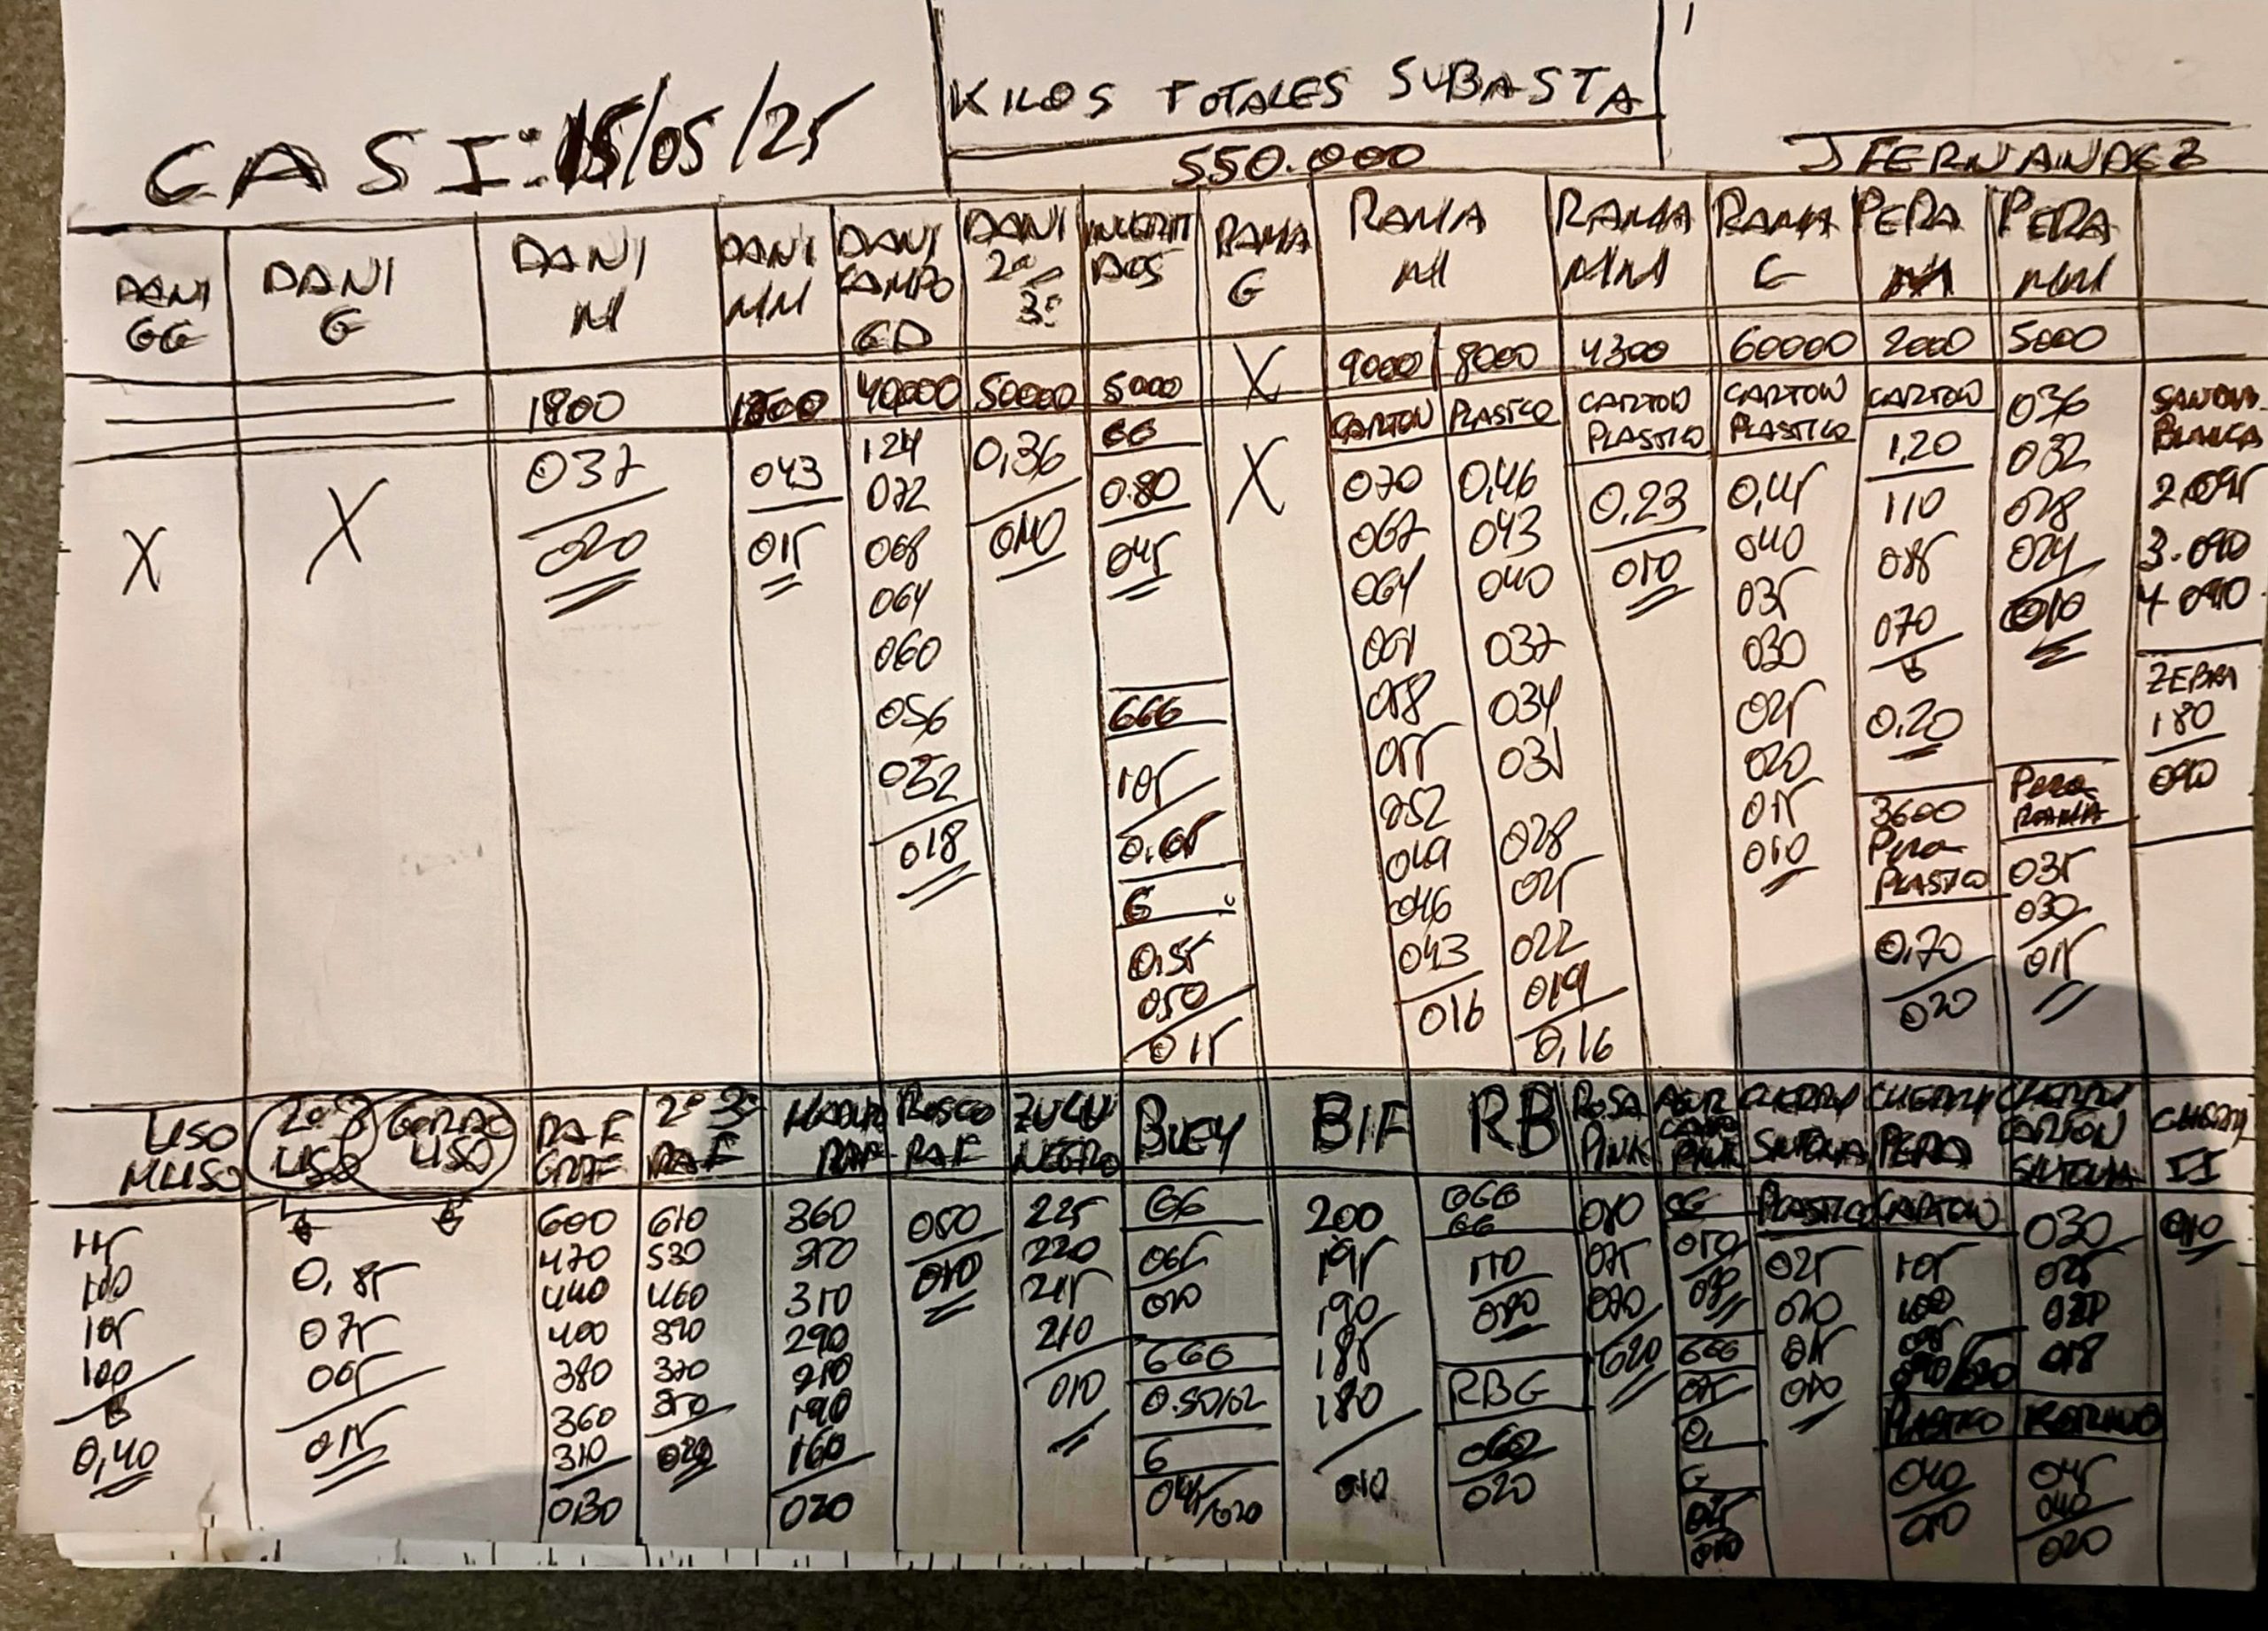 KILOS TOTALES SUBASTA
CASI: 15/05/25
550.000
J FERNANDEZ
DANI GG
DANI G
DANI M
DANI MM
DANI CAMPO GD
DANI 2ª 3ª
INGERTADOS
RAMA G
RAMA M
RAMA MM
RAMA C
PERA M
PERA MM
1800
40000
50000
5000
X
9000
8000
4300
60000
2000
5000
X
X
037
020
043
015
124
072
068
064
060
056
052
018
0,36
010
GG
0.80
045
GGG
105
0.65
G
0.55
050
015
X
CARTON
070
067
064
061
058
055
052
049
046
043
016
PLASTICO
0,46
043
040
037
034
031
028
025
022
019
0,16
CARTON
PLASTICO
0,23
010
CARTON
PLASTICO
0,45
040
035
030
025
020
015
010
CARTON
1,20
110
085
070
0,20
3600
Pera
PLASTICO
0,70
020
036
032
028
024
010
Pera
RAMA
035
030
015
SANDIA
BLANCA
2.095
3.090
4.090
ZEBRA
180
090
LISO
MLISO
115
110
105
100
0,40
2ª 3
LISO
GORDO
LISO
0,85
075
065
015
RAF
GRDE
600
470
440
400
380
360
310
030
2ª 3ª
RAF
610
530
460
390
370
350
020
RAF
360
350
310
290
210
190
160
020
ROSCO
RAF
050
010
ZULU
NEGRO
225
220
215
210
010
BUEY
GG
065
020
GGG
0.50/02
G
045/020
BIF
200
195
190
185
180
010
RB
GGG
GG
110
080
RBG
060
020
ROSA
PINK
080
075
070
020
PINK
GG
050
GGG
075
G
025
010
CHERRY
SINTONIA
PLASTICO
025
020
015
010
CHERRY
PERA
CARTON
105
100
095
090/020
PLASTICO
040
010
CHERRY
CARTON
SINTONIA
030
025
020
018
045
040
020
CHERRY
II
010